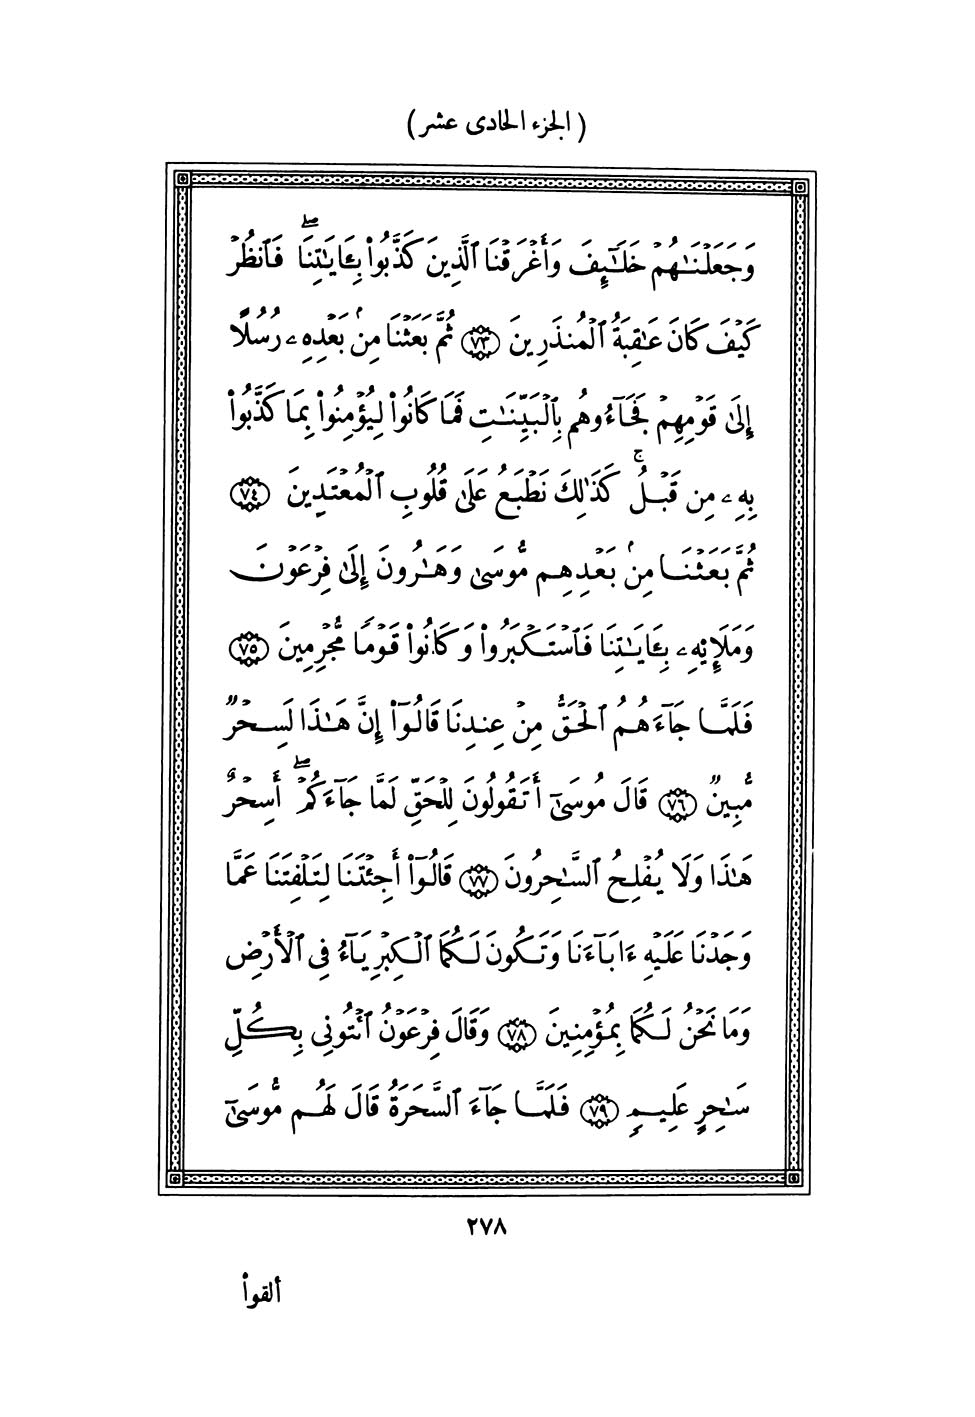 (الجزء الحادى عشر)
وَجَعَلۡنَٰهُمۡ خَلَٰٓئِفَ وَأَغۡرَقۡنَا ٱلَّذِينَ كَذَّبُواْ بِـَٔايَٰتِنَاۖ فَٱنظُرۡ
كَيۡفَ كَانَ عَٰقِبَةُ ٱلۡمُنذَرِينَ ٧٣ ثُمَّ بَعَثۡنَا مِنۢ بَعۡدِهِۦ رُسُلًا
إِلَىٰ قَوۡمِهِمۡ فَجَآءُوهُم بِٱلۡبَيِّنَٰتِ فَمَا كَانُواْ لِيُؤۡمِنُواْ بِمَا كَذَّبُواْ
بِهِۦ مِن قَبۡلُۚ كَذَٰلِكَ نَطۡبَعُ عَلَىٰ قُلُوبِ ٱلۡمُعۡتَدِينَ ٧٤
ثُمَّ بَعَثۡنَا مِنۢ بَعۡدِهِم مُّوسَىٰ وَهَٰرُونَ إِلَىٰ فِرۡعَوۡنَ
وَمَلَإِيْهِۦ بِـَٔايَٰتِنَا فَٱسۡتَكۡبَرُواْ وَكَانُواْ قَوۡمًا مُّجۡرِمِينَ ٧٥
فَلَمَّا جَآءَهُمُ ٱلۡحَقُّ مِنۡ عِندِنَا قَالُوٓاْ إِنَّ هَٰذَا لَسِحۡرٌ
مُّبِينٌ ٧٦ قَالَ مُوسَىٰٓ أَتَقُولُونَ لِلۡحَقِّ لَمَّا جَآءَكُمۡۖ أَسِحۡرٌ
هَٰذَا وَلَا يُفۡلِحُ ٱلسَّٰحِرُونَ ٧٧ قَالُوٓاْ أَجِئۡتَنَا لِتَلۡفِتَنَا عَمَّا
وَجَدۡنَا عَلَيۡهِ ءَابَآءَنَا وَتَكُونَ لَكُمَا ٱلۡكِبۡرِيَآءُ فِى ٱلۡأَرۡضِ
وَمَا نَحۡنُ لَكُمَا بِمُؤۡمِنِينَ ٧٨ وَقَالَ فِرۡعَوۡنُ ٱئۡتُونِى بِكُلِّ
سَٰحِرٍ عَلِيمٍ ٧٩ فَلَمَّا جَآءَ ٱلسَّحَرَةُ قَالَ لَهُم مُّوسَىٰٓ
٢٧٨
ألقواْ